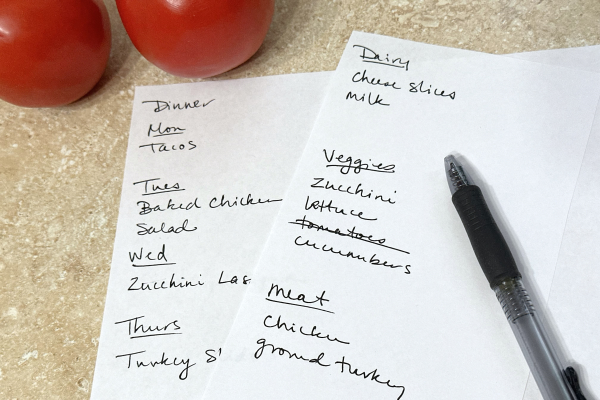 Dinner
Mon
Tacos
Tues
Baked Chicken
Salad
Wed
Zucchini Las
Thurs
Turkey S
Dairy
Cheese slices
Milk
Veggies
Zucchini
lettuce
tomatoes
cucumbers
Meat
Chicken
ground turkey